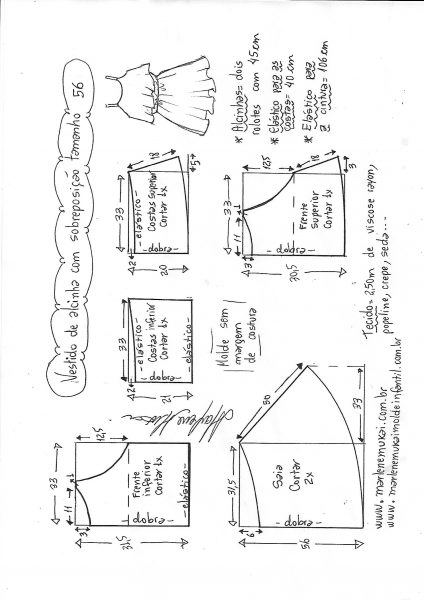 Vestido de alcinha com sobreposição tamanho 56
* Alcinhas = dois
rolotes com 45cm
* Elástico para as
costas = 40 cm
* Elástico para
a cintura = 106cm
18
5
33
- elástico -
Costas superior
Cortar 1x
- dobra -
2
20
12,5
18
3
33
1
11
3
Frente
superior
Cortar 1x
- dobra -
20,5
33
- elástico -
Costas inferior
Cortar 1x
- dobra -
- elástico -
2
21
Molde sem
margem
de costura
Tecido = 2,50m de viscose rayon,
popeline, crepe, seda...
12,5
33
1
11
3
Frente
inferior
Cortar 1x
- elástico -
- dobra -
31,5
50
31,5
33
Saia
Cortar
2x
- dobra -
6
56
www.marlenemukai.com.br
www.marlenemukaimoldeinfantil.com.br